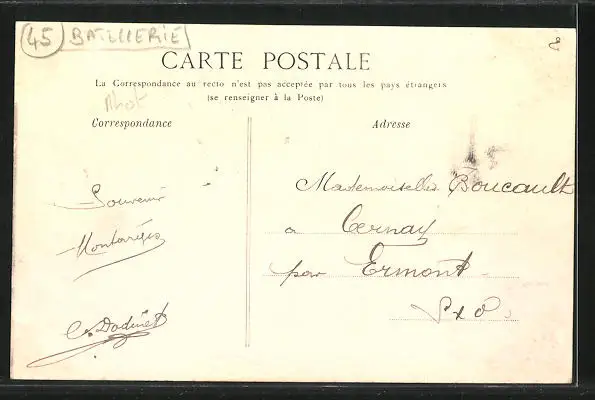 45 BATELLERIE
CARTE POSTALE
La Correspondance au recto n'est pas acceptée par tous les pays étrangers
(se renseigner à la Poste)
Correspondance
Adresse
Souvenir
Montargis
C. Dodinet
Mademoiselle Boucault
a Cernay
par Ermont
S & O